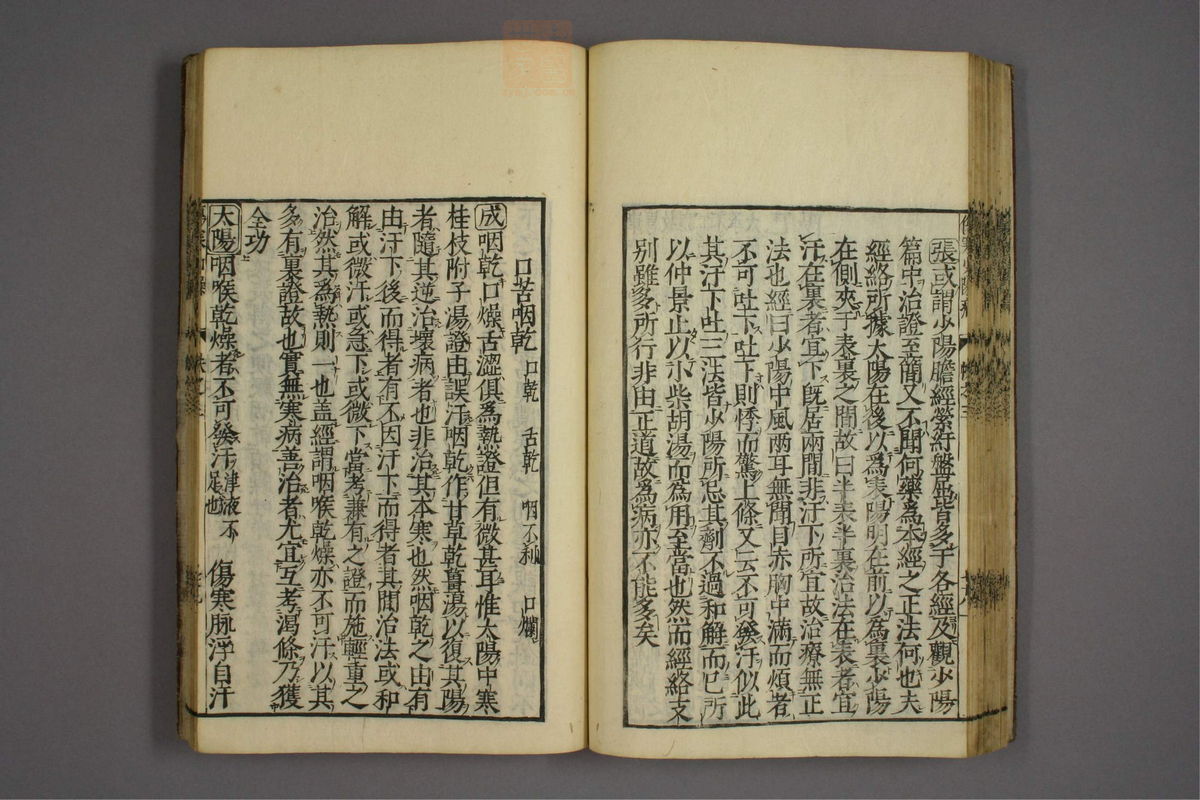 張或謂少陽膽經縈紆盤屈皆多于各經及觀少陽
篇中治證至簡又不聞何藥爲本經之正法何也夫
經絡所據太陽在後以爲表陽明在前以為裏少陽
在側夾于表裏之間故曰半表半裏治法在表者宜
汗在裏者宜下既居兩間非汗下所宜故治療無正
法也經曰少陽中風兩耳無聞目赤胸中滿而煩者
不可吐下吐下則悸而驚上條又云不可發汗似此
其汗下吐三法皆少陽所忌其劑不過和解而已所
以仲景止以小柴胡湯而爲用至當也然而經絡支
別雖多所行非由正道故爲病亦不能多矣
口苦咽乾 口乾 舌乾 咽不利 口爛
成咽乾口燥舌澀俱爲熱證但有微甚耳惟太陽中寒
桂枝附子湯證由誤汗咽乾作甘草乾薑湯以復其陽
者隨其逆治壞病者也非治其本寒也然咽乾之由有
由汗下後而得者有不因汗下而得者其間治法或和
解或微汗或急下或微下當考兼有之證而施輕重之
治然其為熱則一也蓋經謂咽喉乾燥亦不可汗以其
多有裏證故也實無寒病善治者尤宜互考渴條乃獲
全功
太陽咽喉乾燥者不可發汗津液不足也 傷寒脉浮自汗